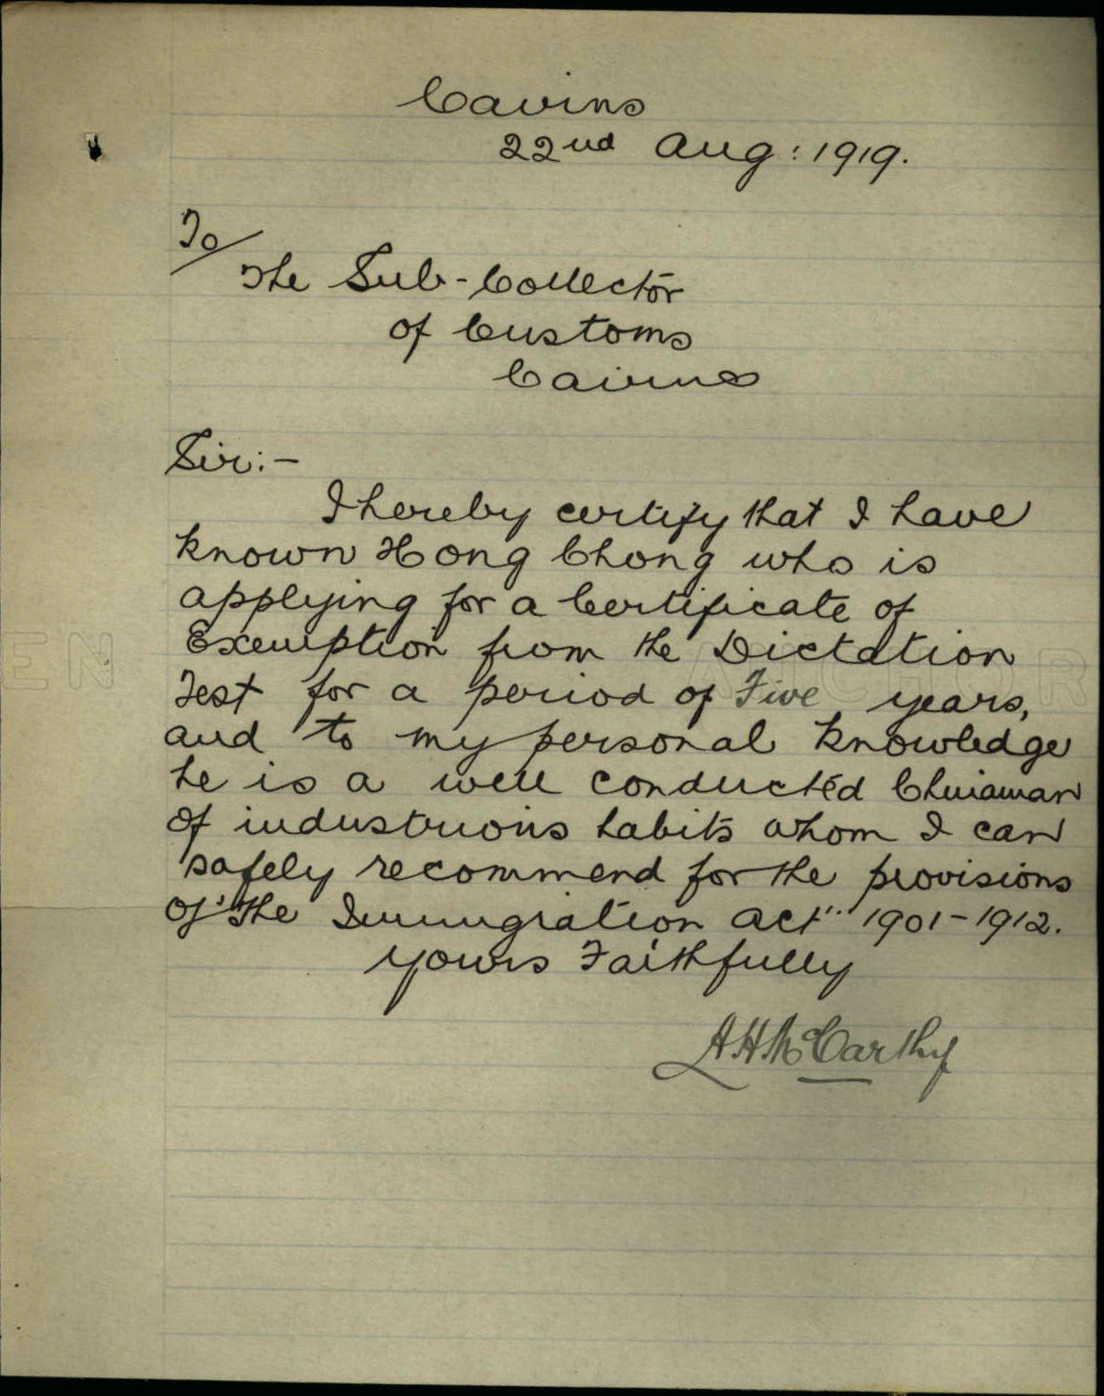 Cairns
22nd Aug: 1919.
To/
The Sub-Collector
of Customs
Cairns
Sir:-
I hereby certify that I have
known Hong Chong who is
applying for a Certificate of
Exemption from the Dictation
Test for a period of Five years,
and to my personal knowledge
he is a well conducted Chinaman
of industrious habits whom I can
safely recommend for the provisions
of "The Immigration Act" 1901-1912.
Yours Faithfully
A H McCarthy